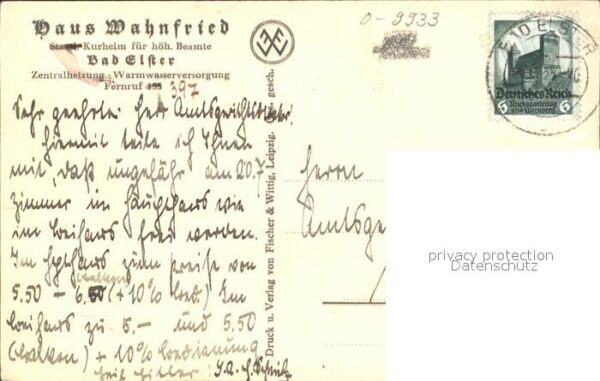 Haus Wahnfried
Staatl. Kurheim für höh. Beamte
Bad Elster
Zentralheizung · Warmwasserversorgung
Fernruf 397
Sehr geehrter Herr Amtsgerichtsrat!
Hiermit teile ich Ihnen
mit, daß ungefähr am 20.7
Zimmer im Haupthaus wie
im Beihaus frei werden.
Im Haupthaus zum Preise von
5.50 – 6.50 (+ 10% Bed.) Im
Beihaus zu 5.- und 5.50
(Balkon) + 10% Bedienung
Heil Hitler!
Druck u. Verlag von Fischer & Wittig, Leipzig. Ges. gesch.
0-9933
BAD ELSTER
Deutsches Reich
Reichsparteitag
1934 Nürnberg
6 6
Herrn
Amtsge
privacy protection
Datenschutz